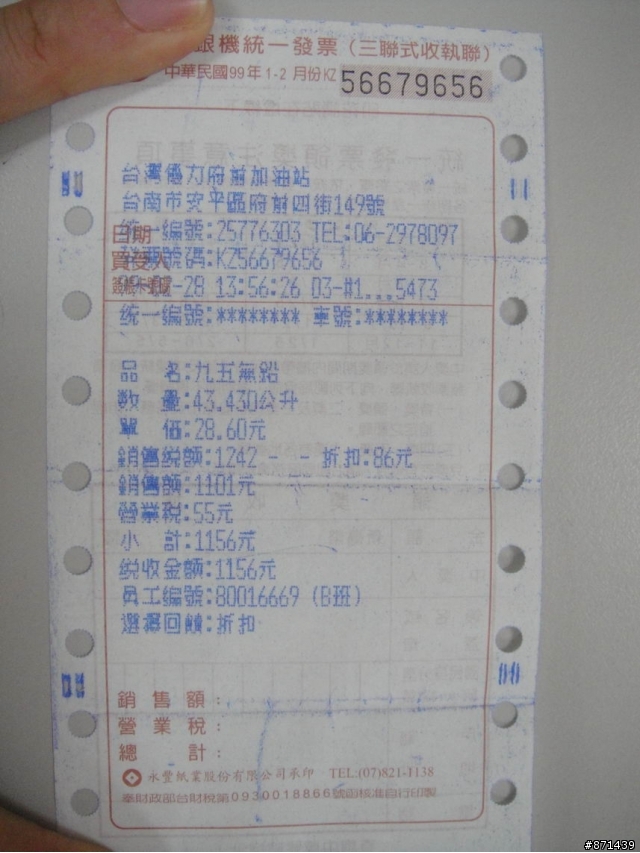 銀機統一發票（三聯式收執聯）
中華民國99年1-2月份KZ 56679656
台灣優力府前加油站
台南市安平區府前四街149號
日期
統一編號:25776303 TEL:06-2978097
買受人
號碼:KZ56679656
-28 13:56:26 03-#1...5473
統一編號:******** 車號:********
品 名:九五無鉛
數 量:43.430公升
單 價:28.60元
銷售稅額:1242 - - 折扣:86元
銷售額:1101元
營業稅:55元
小 計:1156元
稅收金額:1156元
員工編號:80016669 (B班)
選擇回饋:折扣
銷售額:
營業稅:
總計:
永豐紙業股份有限公司承印 TEL:(07)821-1138
奉財政部台財稅第0930018866號函核准自行印製
#871439